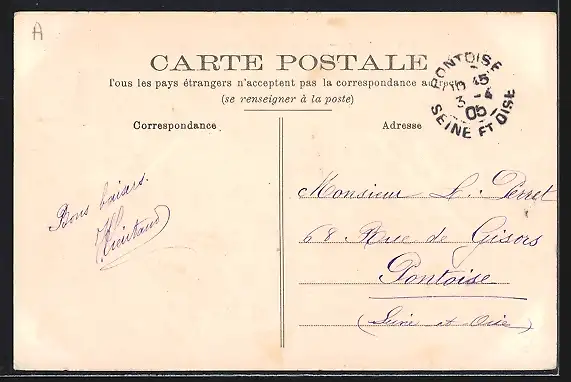 A
CARTE POSTALE
Tous les pays étrangers n'acceptent pas la correspondance au
(se renseigner à la poste)
PONTOISE
10 45
3 - 4
05
SEINE ET OISE
Correspondance
Adresse
Bons baisers.
Monsieur L. Perret
68 Rue de Gisors
Pontoise
(Seine et Oise)